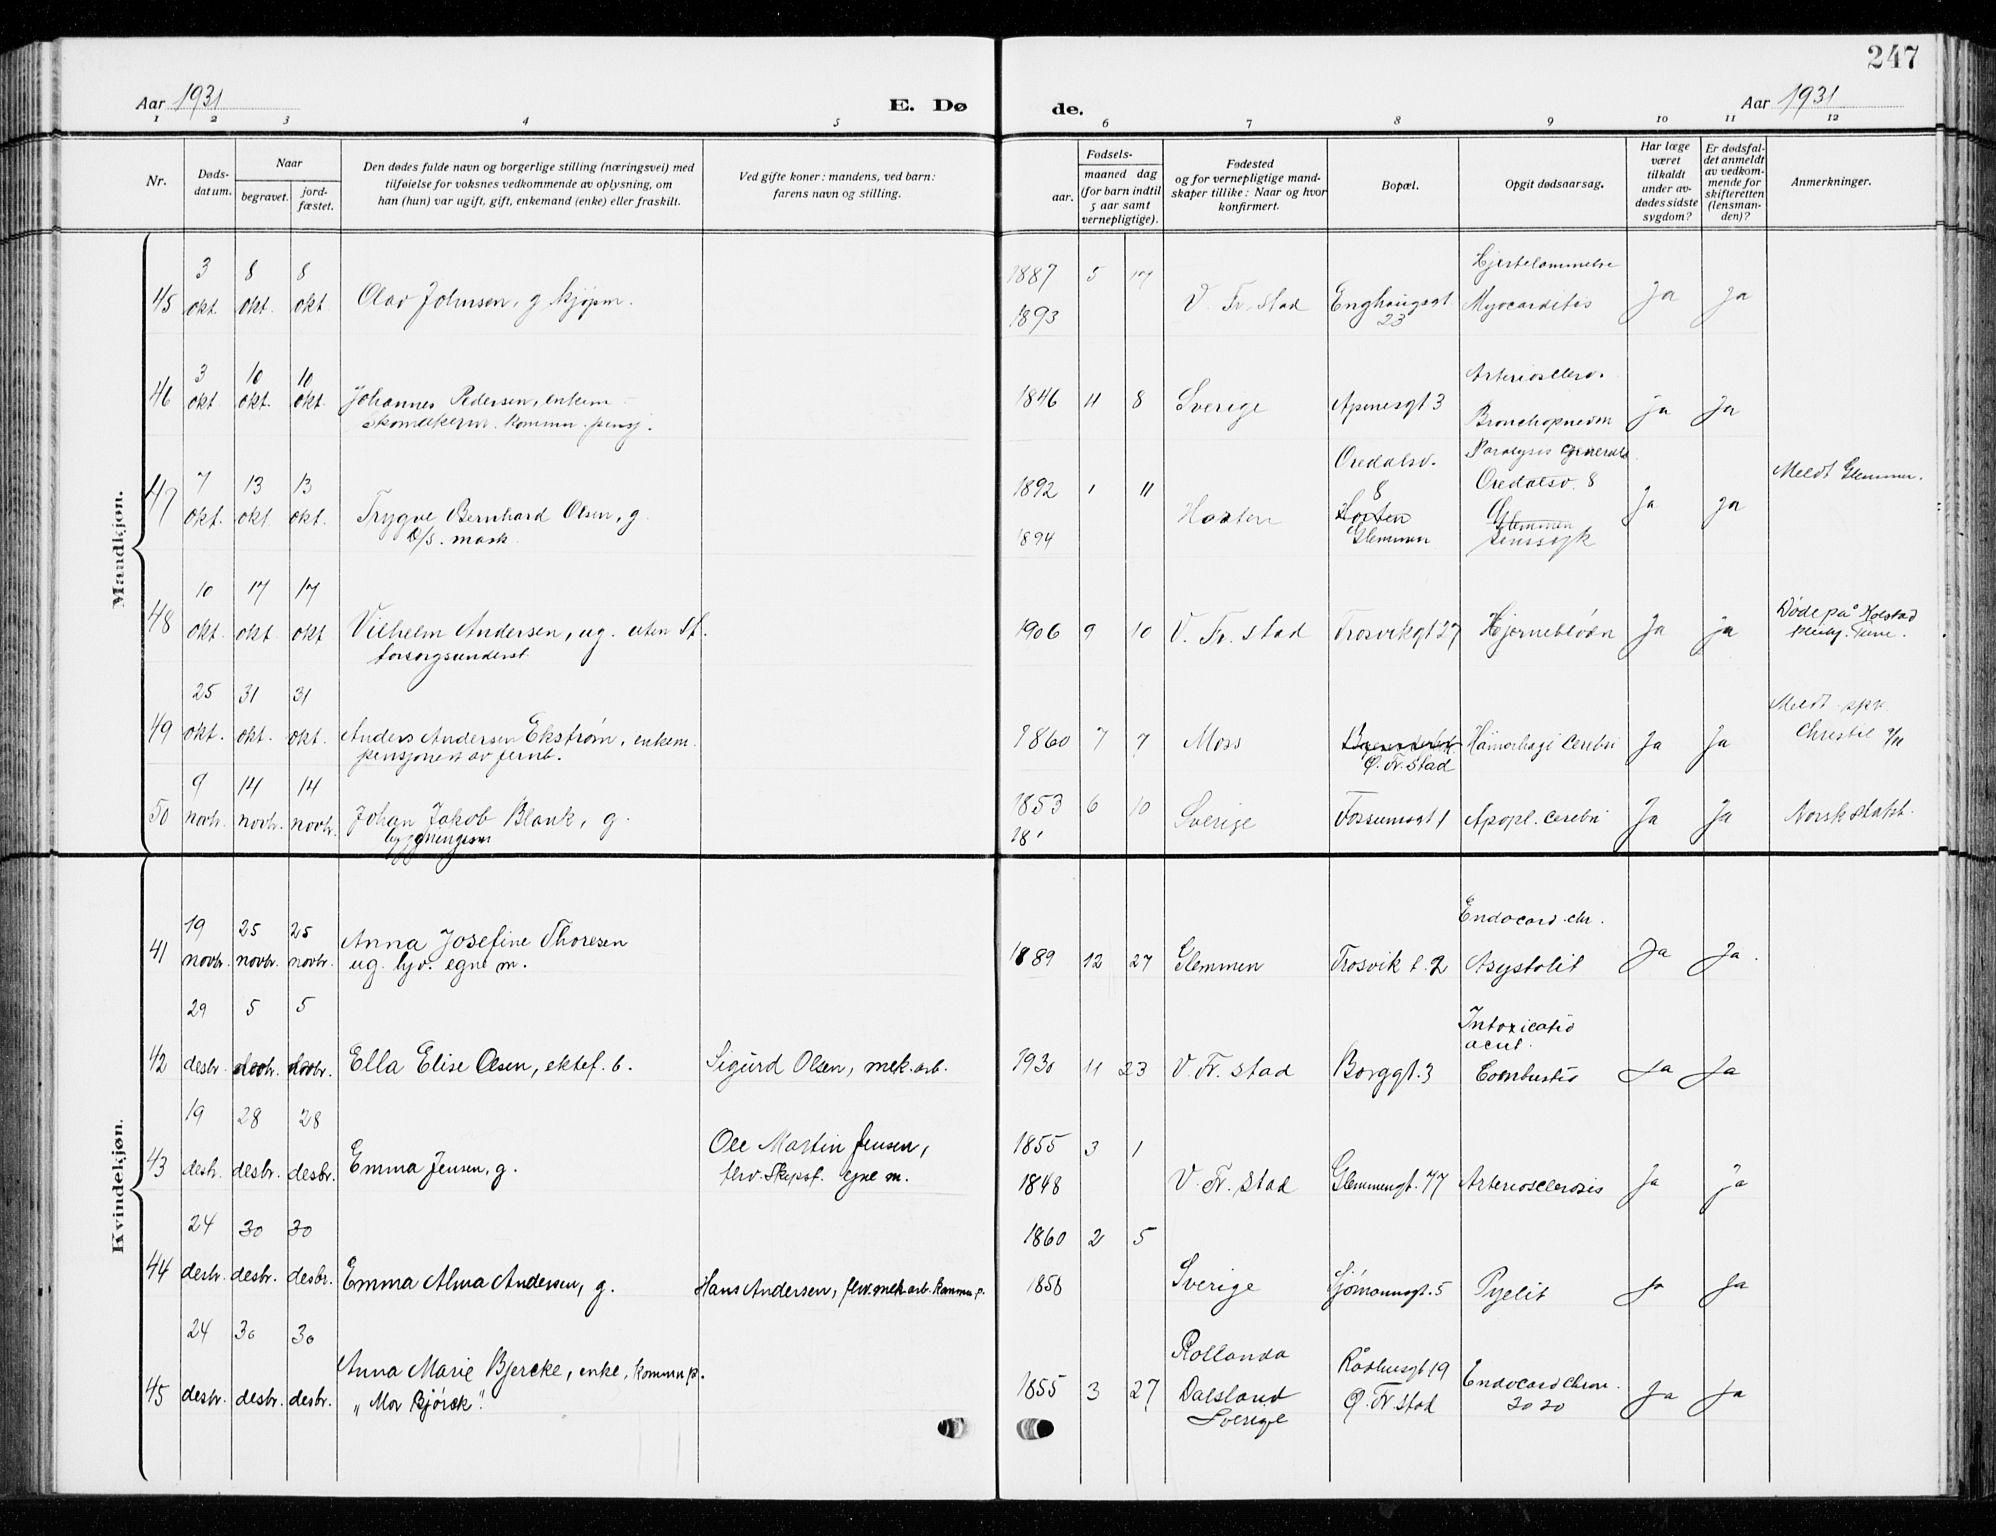 247
Aar 1931
E. Dø
de.
Aar 1931
1 2 3 4 5 6 7 8 9 10 11 12
Nr.
Døds-
datum.
Naar
begravet.
jord-
fæstet.
Den dødes fulde navn og borgerlige stilling (næringsvei) med
tilføielse for voksnes vedkommende av oplysning, om
han (hun) var ugift, gift, enkemand (enke) eller fraskilt.
Ved gifte koner: mandens, ved barn:
farens navn og stilling.
Fødsels-
aar.
maaned dag
(for barn indtil
5 aar samt
vernepligtige).
Fødested
og for vernepligtige mand-
skaper tillike: Naar og hvor
konfirmert.
Bopæl.
Opgit dødsaarsag.
Har læge
været
tilkaldt
under av-
dødes sidste
sygdom?
Er dødsfal-
det anmeldt
av vedkom-
mende for
skifteretten
(lensman-
den)?
Anmerkninger.
Mandkjøn.
3 8 8
45 okt. okt. okt. Olav Johnsen, g. kjøpm.
1887 5 17
1893
V. Fr. stad
Enghaugsgt
23
Hjertelammelse
Myocarditis
Ja Ja
3 10 10
46 okt. okt. okt. Johannes Pedersen, enkem
Skomakerm. kommu. pensj.
1846 11 8 Sverige Apenesgt 3
Arterioscler.
Bronchopneum
Ja Ja
7 13 13
47 okt. okt. okt. Trygve Bernhard Olsen, g.
D/S. mask.
1892 1 11
1894
Horten
Oredalsv.
8
Horten
Glemmen
Paralysis generalis
Oredalsv. 8
Glemmen
sinssyk
Ja Ja
Meldt Glemmen.
10 17 17
48 okt. okt. okt. Vilhelm Andersen, ug. uten st.
forsorgsunderst.
1906 9 10 V. Fr. stad Trosvikgt 27 Hjerneblødn Ja Ja
Døde på Kolstad
pleiehj. Tune.
25 31 31
49 okt. okt. okt. Anders Andersen Ekstrøm, enkem.
pensjonert av jernb.
1860 7 7 Moss
Ø. Fr. stad
Hämorhagi Cerebri Ja Ja
Meldt spr.
Christie
9 14 14
50 novbr. novbr. novbr. Johan Jakob Blank, g.
bygningssn
1853 6 10
181
Sverige Fossumsgt 1 Apopl. Cerebri Ja Ja Norsk statsb.
Kvindekjøn.
19 25 25
41 novbr. novbr. novbr. Anna Josefine Thoresen
ug. lyv. egne m.
1889 12 27 Glemmen Trosvik t. 2
Endocard. chr.
Asystolit
Ja Ja.
29 5 5
42 desbr. Ella Elise Olsen, ektef. b. Sigurd Olsen, mek. arb.
1930 11 23 V. Fr. stad Borggt. 3
Intoxicatio
acut.
Combustio
Ja Ja
19 28 28
43 desbr. desbr. desbr. Emma Jensen, g.
Ole Martin Jensen,
frv. Skipsf. egne m.
1855 3 1
1848
V. Fr. stad Glemmengt. 77 Arteriosclerosis Ja Ja
24 30 30
44 desbr. desbr. desbr. Emma Alma Andersen, g. Hans Andersen, frv. mek. arb. kommu. p.
1860 2 5
1858
Sverige Sjømannsgt. 5 Pyelit Ja Ja
24 30 30
45 desbr. desbr. desbr. Anna Marie Bjercke, enke, kommu p.
„Mor Bjørck".
1855 3 27
Rollanda
Dalsland
Sverige
Rådhusgt 19
Ø. Fr. stad
Endocard Chron.
Ja Ja